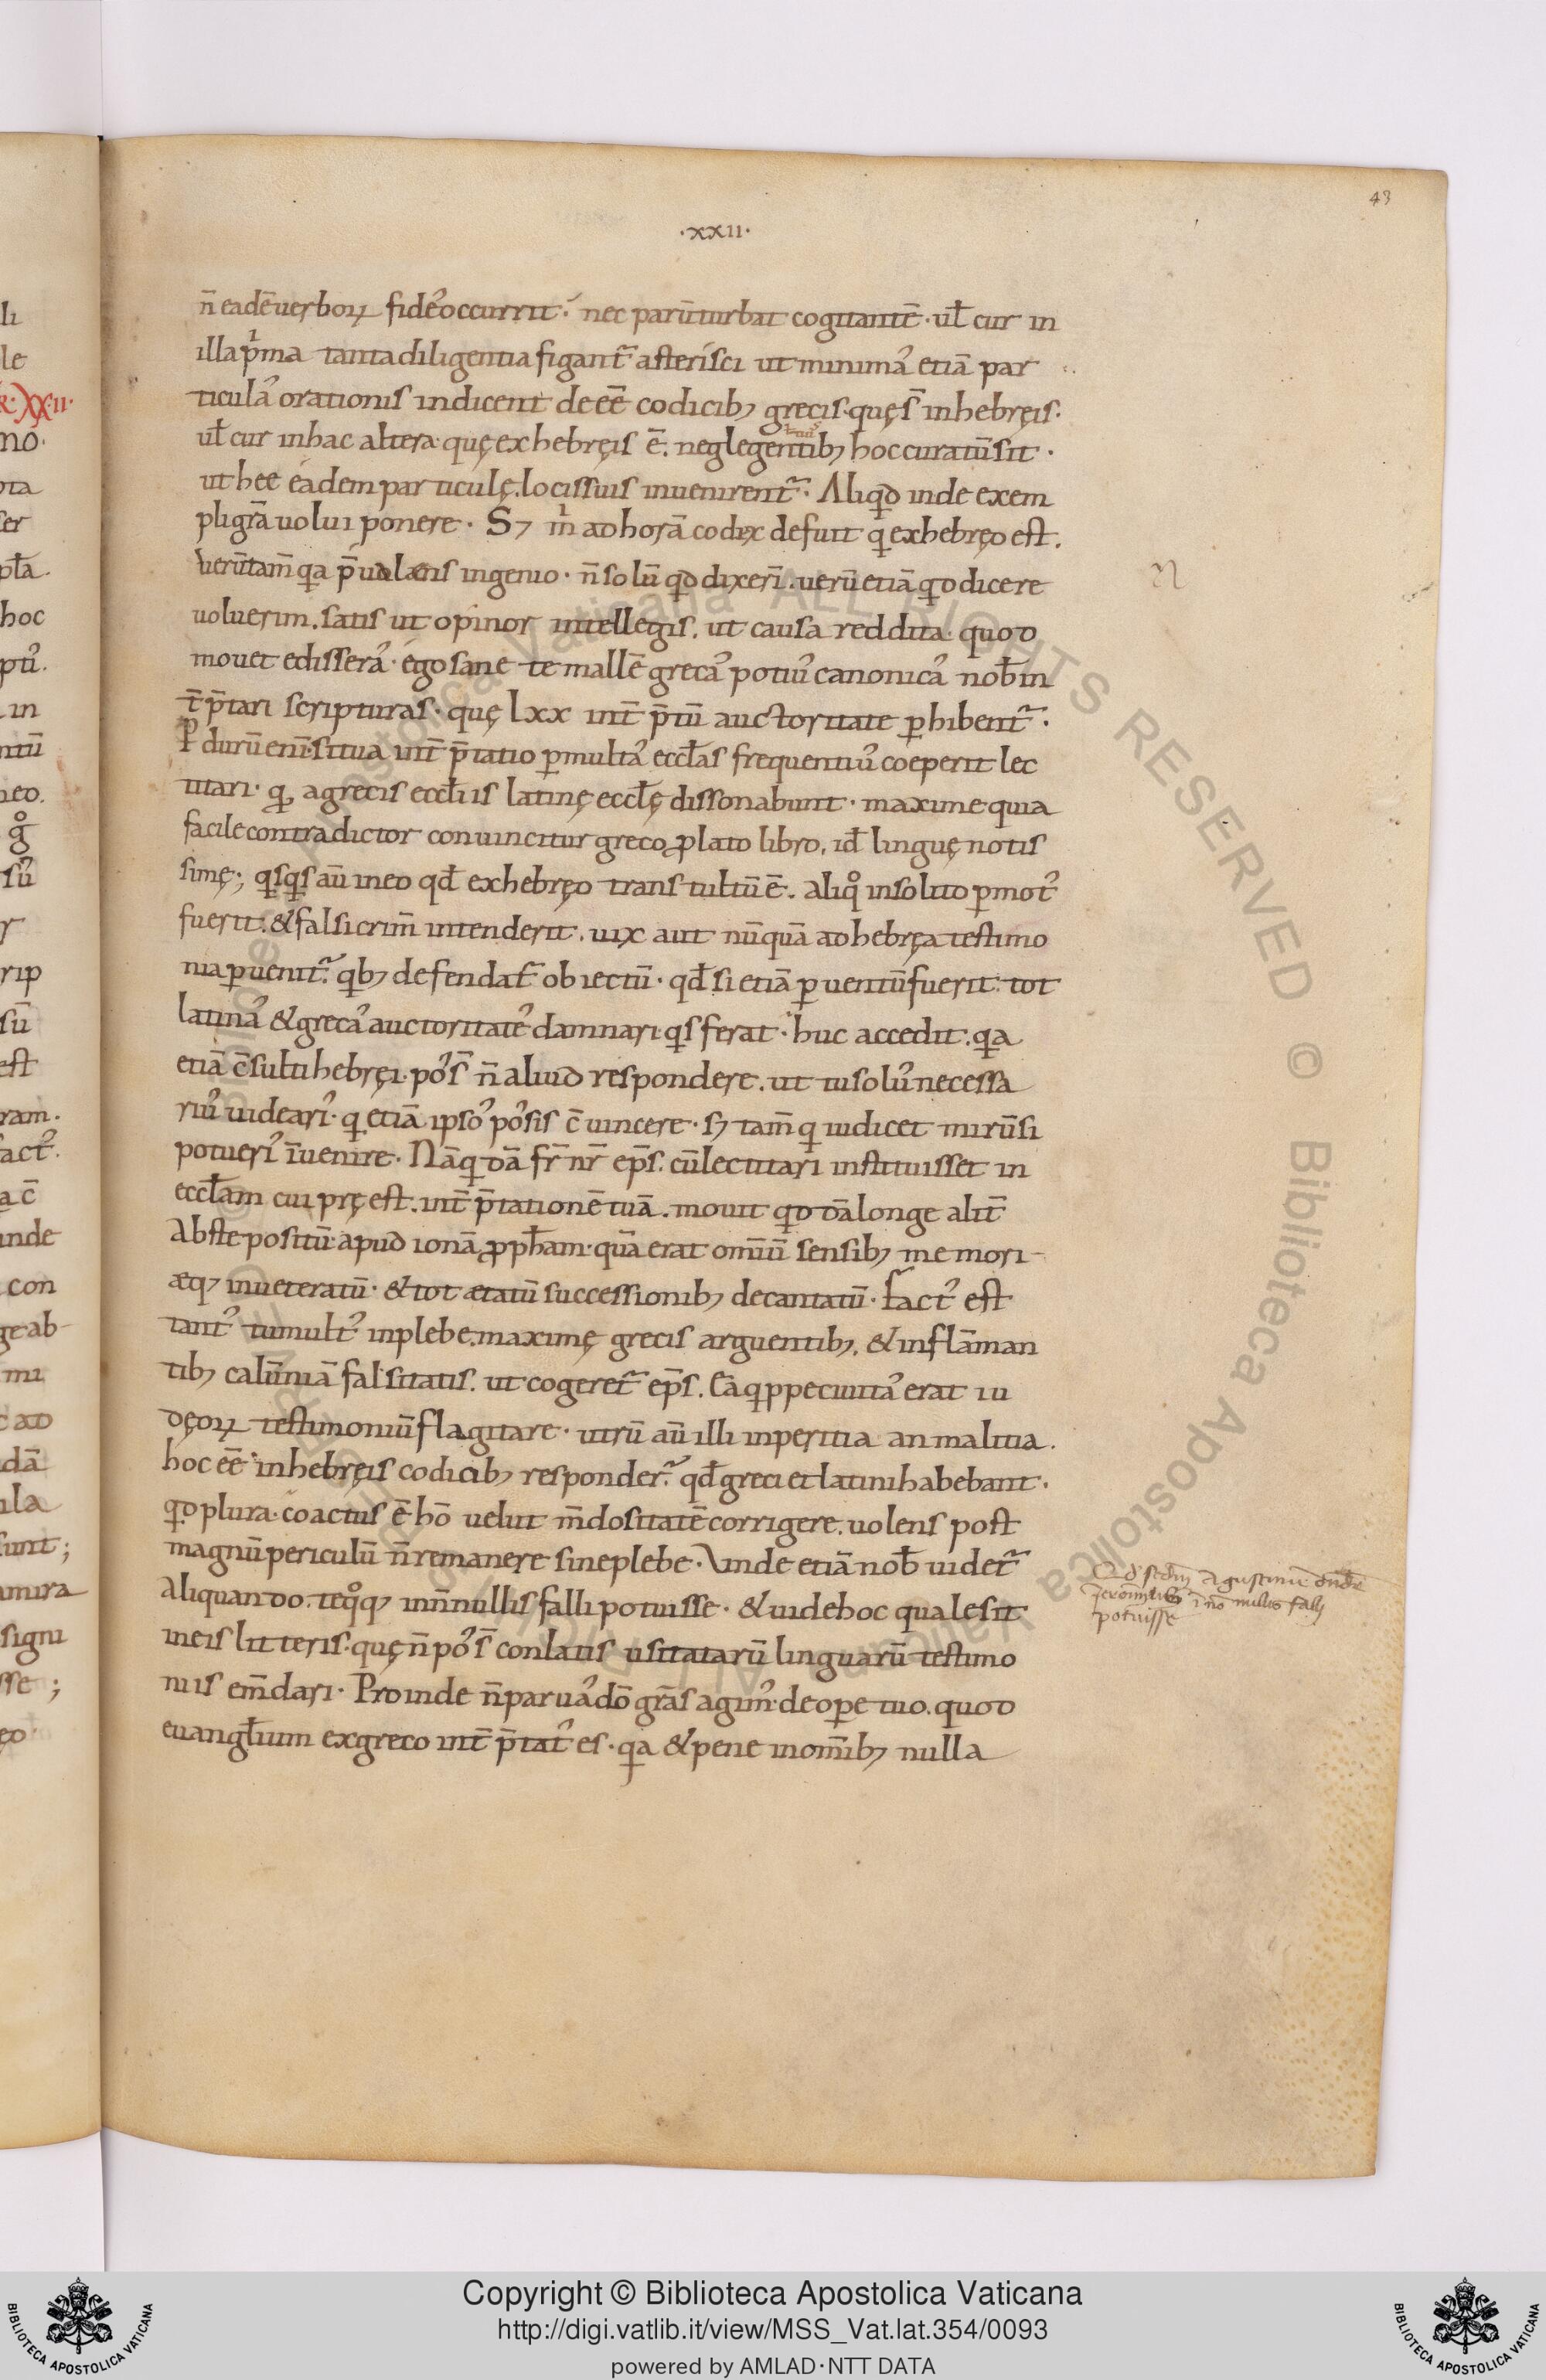 43
·xxii·
n̄ eadē uerboꝝ fideˀ occurrit· nec parū turbat cogitantē· ul̄ cur in
illa p̍ma tanta diligentia figant᷑ asterisci ut minimaˀ etiā par
ticulaˀ orationis indicent deee̅ codicibꝫ grecis· quę s̄ in hebręis·
ul̄ cur in hac altera· quę ex hebręis ē. neglegentibꝫ hoc curatū sit·
ut hee eadem particulę. locis suis inuenirent᷑· Aliqd inde exem
pli grā uolui ponere· S⁊ m̍ ad horā codex defuit q̍ ex hebręo est.
uerūtam̄ qa p̄uolans ingenio· n̄ solū qd dixeri̅. uerū etiā qd dicere
uoluerim. satis ut opinor intellegis. ut causa reddita quod
mouet edisseraˀ· ego sane te mallē grecaˀ potiuˀ canonicaˀ nob̄ in
t̄p̄tari scripturas· quę lxx int̄p̄tū auctoritate ꝑhibent᷑·
P durū eni· si tua int̄p̄tatio ꝑ multaˀ eccl̄as frequentiuˀ coeperit lec
titari· q, a grecis eccl̄iis latinę eccl̄ę dissonabunt· maxime quia
facile contradictor conuincitur greco ꝓlato libro. id̄ linguę notis
simę; qsqs aū in eo qd̄ ex hebręo translatū ē. aliqͦ insolito ꝑmotˀ
fuerit. & falsi crim̄ intenderit. uix aut nūquā ad hebręa testimo
nia ꝑuenit᷑. qbꝫ defendat᷑ obiectū· qd̄ si etiā ꝑuentū fuerit. tot
latinaˀ & grecaˀ auctoritateˀ damnari qs ferat· huc accedit. qa
etiā c̄sulti hebręi· poˀs̄ n̄ aliud respondere. ut tu soluˀ necessa
riuˀ uideariˀ· q etiā ipsoˀ poˀsis c̄uincere· sꝫ tam̄ q iudicet mirū si
potueriˀ īuenire· Nāq dā fr̄ nr̄ ep̄s. cū lectitari instituisset in
eccl̄am cui pręest. int̄p̄tationē tuā. mouit qd dā longe alit̄
Abs te positū apud ionā ꝓph̄am· quā erat omīū sensibꝫ memori-
æqꝫ inueteratū· & tot ætatū successionibꝫ decantatū· factˀ est
tantˀ tumultˀ in plebe. maximę grecis arguentibꝫ. & inflāman
tibꝫ calūniā falsitatis. ut cogeret᷑ ep̄s. Eā qppe ciuitaˀ erat iu
dęoꝝ testimoniū flagitare· utrū aū illi inperitia an malitia.
hoc ee̅ in hebręis codicibꝫ responder᷑. qd̄ greci et latini habebant·
qd plura· coactus ē hō uelut m̄dositatē corrigere. uolens post
magnū periculū n̄ remanere sine plebe· Unde etiā nob̄ uidet᷑
Aliquando. te qͦqꝫ in n̄nullis falli potuisse· & uide hoc quale sit
in eis litteris· quę n̄ poˀs̄ conlatis usitatarū linguarū testimo
niis em̄dari· Proinde n̄ paruaˀ dō grās agimˀ de oꝑe tuo. quod
euangl̄ium ex greco int̄p̄tatˀ es· qa & pene in om̄ibꝫ nulla
potuisse
Copyright © Biblioteca Apostolica Vaticana
http://digi.vatlib.it/view/MSS_Vat.lat.354/0093
powered by AMLAD·NTT DATA